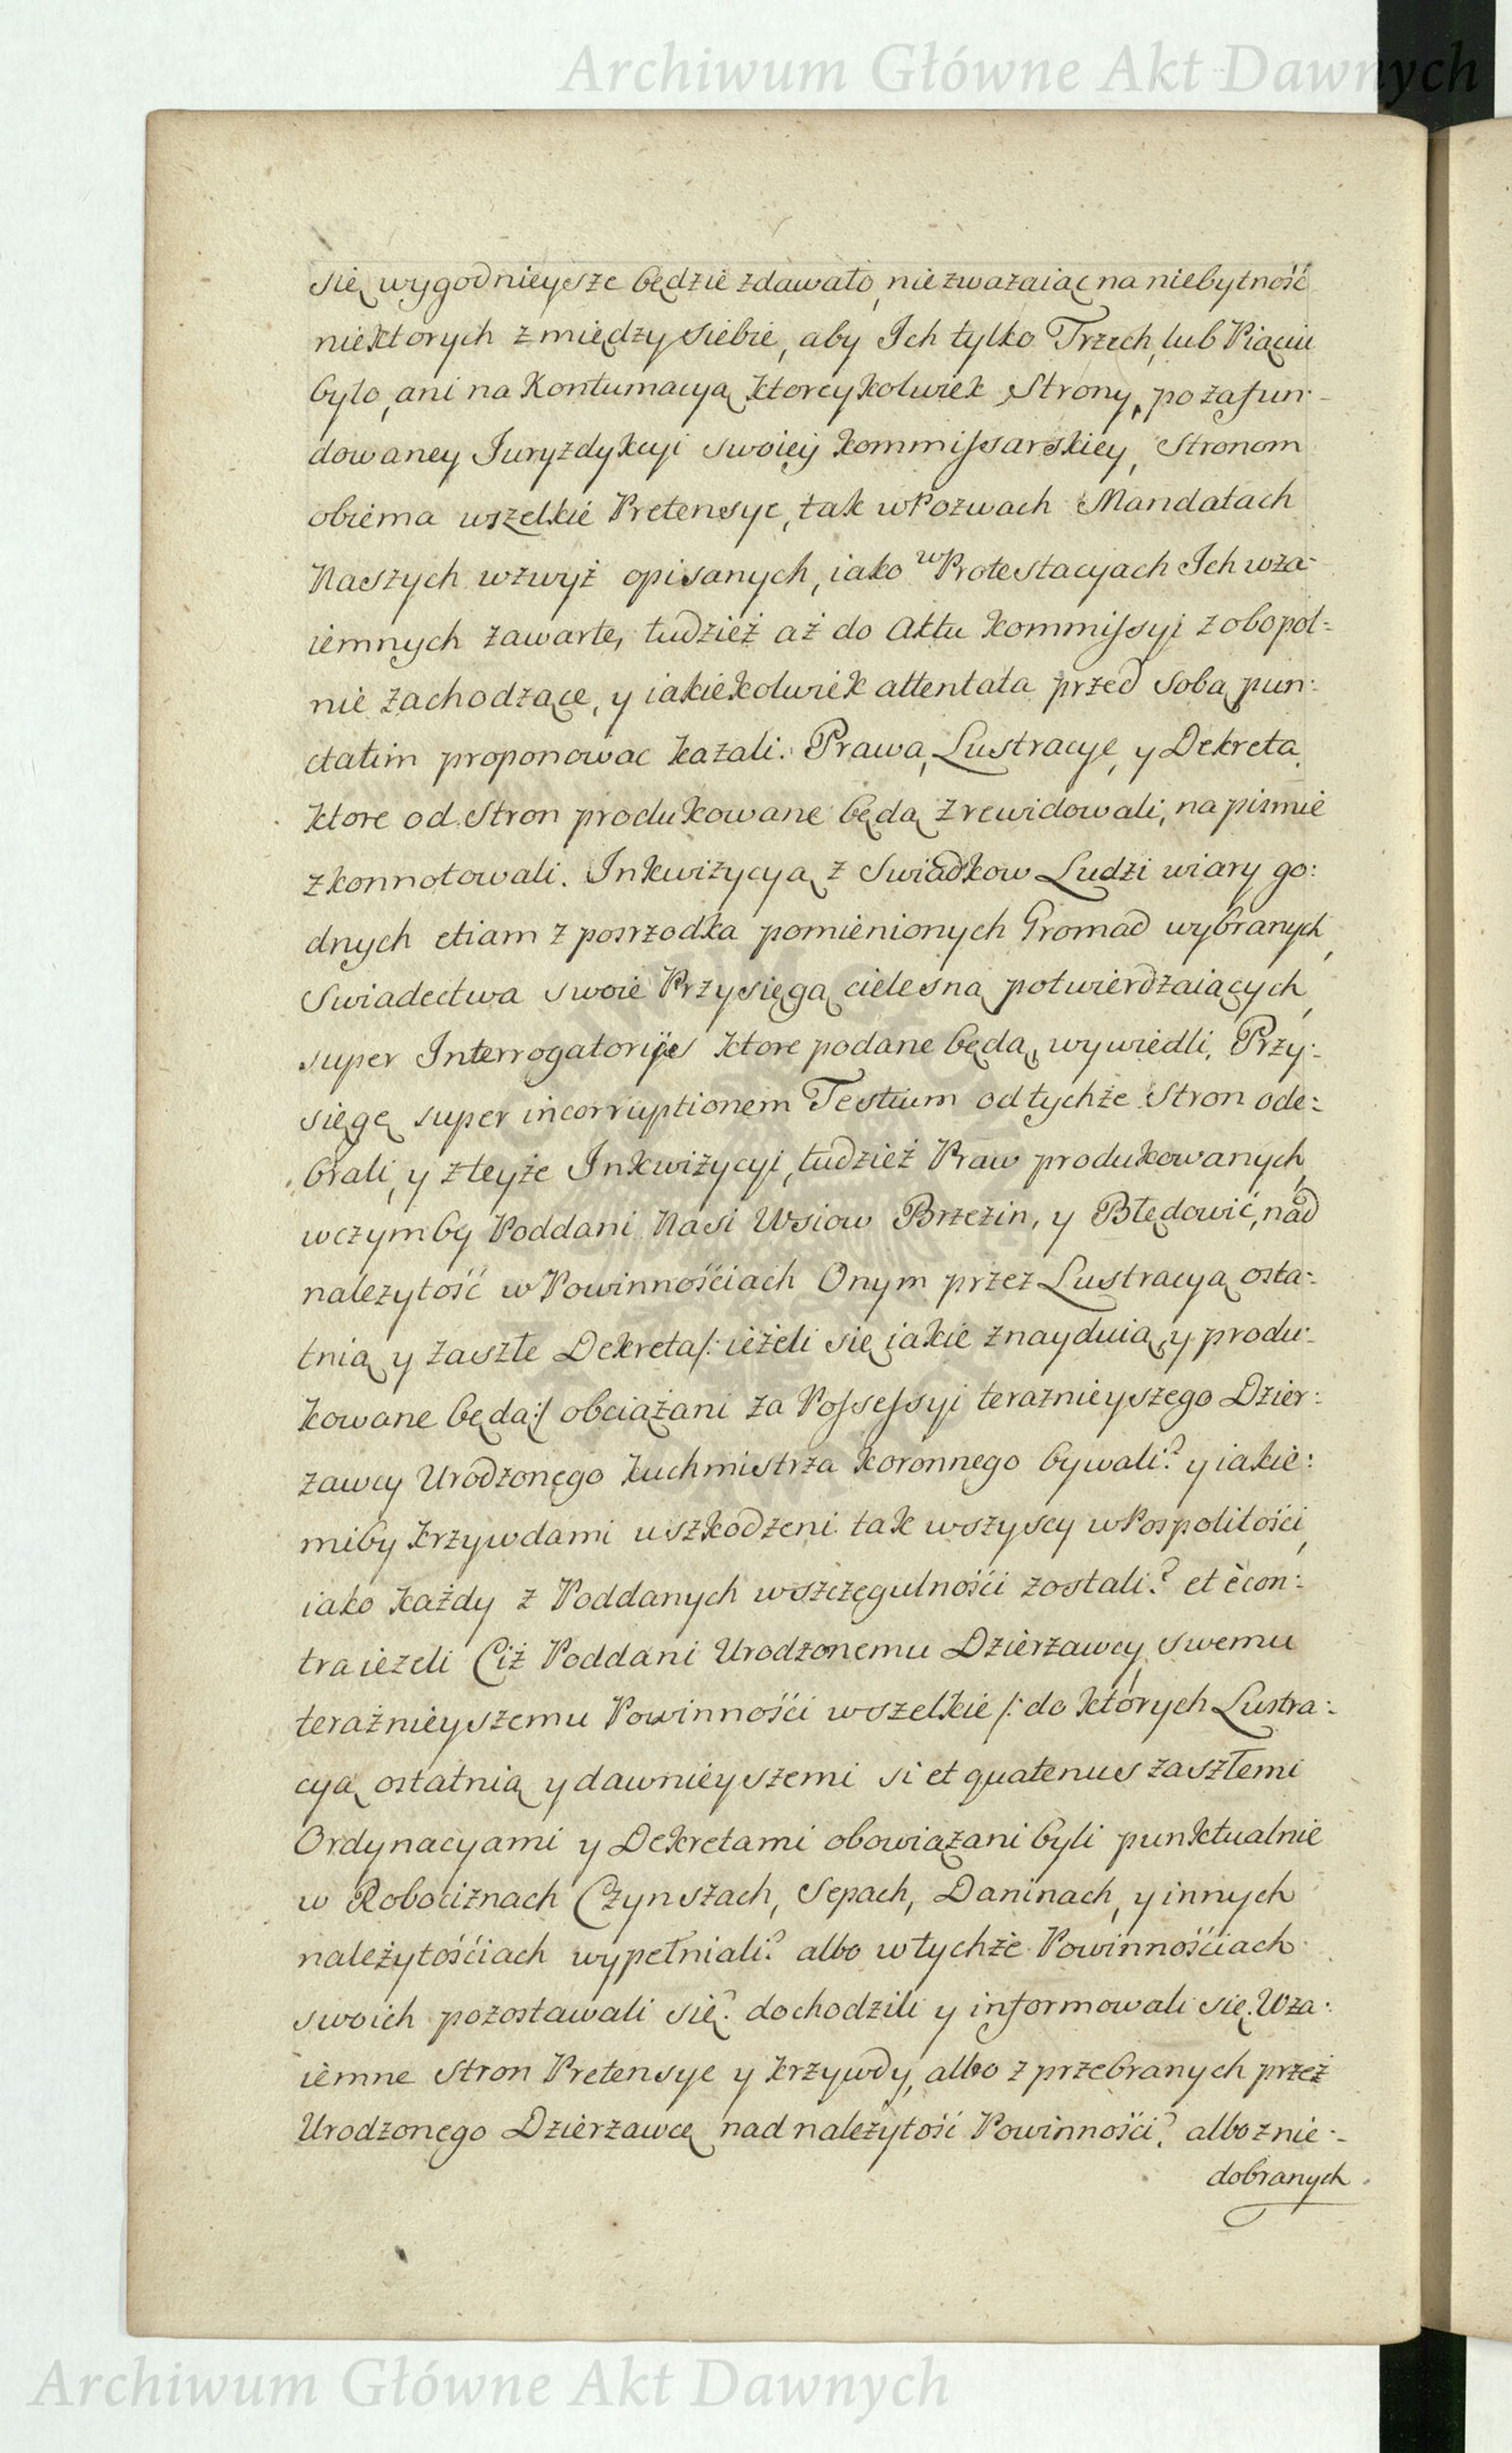 Archiwum Główne Akt Dawnych
się wygodnieysze będzie zdawało, nie zwazaiąc na niebytność
niektorych z między siebie, aby Ich tylko Trzech, lub Piąciu
było, ani na Kontumacyą ktoreykolwiek Strony, po zafun-
dowaney Juryzdykcyi swoiey Kommissarskiey, Stronom
obiema wszelkie Pretensye, tak w Pozwach Mandatach
Naszych wzwyż opisanych, iako w Protestacyach Ich wza-
iemnych zawarte, tudzież aż do Aktu Kommissyi z obopol=
nie zachodzące, y iakiekolwiek attentata przed sobą pun:
ctatim proponowac kazali. Prawa, Lustracye, y Dekreta,
ktore od Stron produkowane będą zrewidowali, na pismie
zkonnotowali. Inkwizycyą z Swiadkow Ludzi wiary go:
dnych etiam z posrzodka pomienionych Gromad wybranych,
Swiadectwa swoie Przysięgą cielesną potwierdzaiących,
super Interrogatoryes ktore podane będą, wywiedli, Przy:
sięgę super incorruptionem Testium od tychże Stron ode:
brali, y z teyże Inkwizycyi, tudzież Praw produkowanych,
w czymby Poddani Nasi Wsiow Brzezin, y Błędowić, nad
nalezytość w Powinnościach Onym przez Lustracyą osta:
tnią y zaszłe Dekreta /: ieżeli się iakie znayduią, y produ:
kowane będą :/ obciążani za Possessyi teraznieyszego Dzier:
zawcy Urodzonego Kuchmistrza Koronnego bywali? y iakie:
miby krzywdami uszkodzeni tak wszyscy w Pospolitości,
iako każdy z Poddanych w szczegulności zostali? et ècon:
tra ieżeli Ciż Poddani Urodzonemu Dzierzawcy swemu
teraźnieyszemu Powinności wszelkie /: do których Lustra:
cyą ostatnią y dawnieyszemi si et quatenus zaszłemi
Ordynacyami y Dekretami obowiązani byli punktualnie
w Robociznach Czynszach, Sepach, Daninach, y innych
należytościach wypełniali? albo w tychże Powinnościach
swoich pozostawali się? dochodzili y informowali się. Wza:
iemne Stron Pretensye y krzywdy, albo z przebranych przez
Urodzonego Dzierzawcę nad należytość Powinności? albo z nie:
dobranych
Archiwum Główne Akt Dawnych